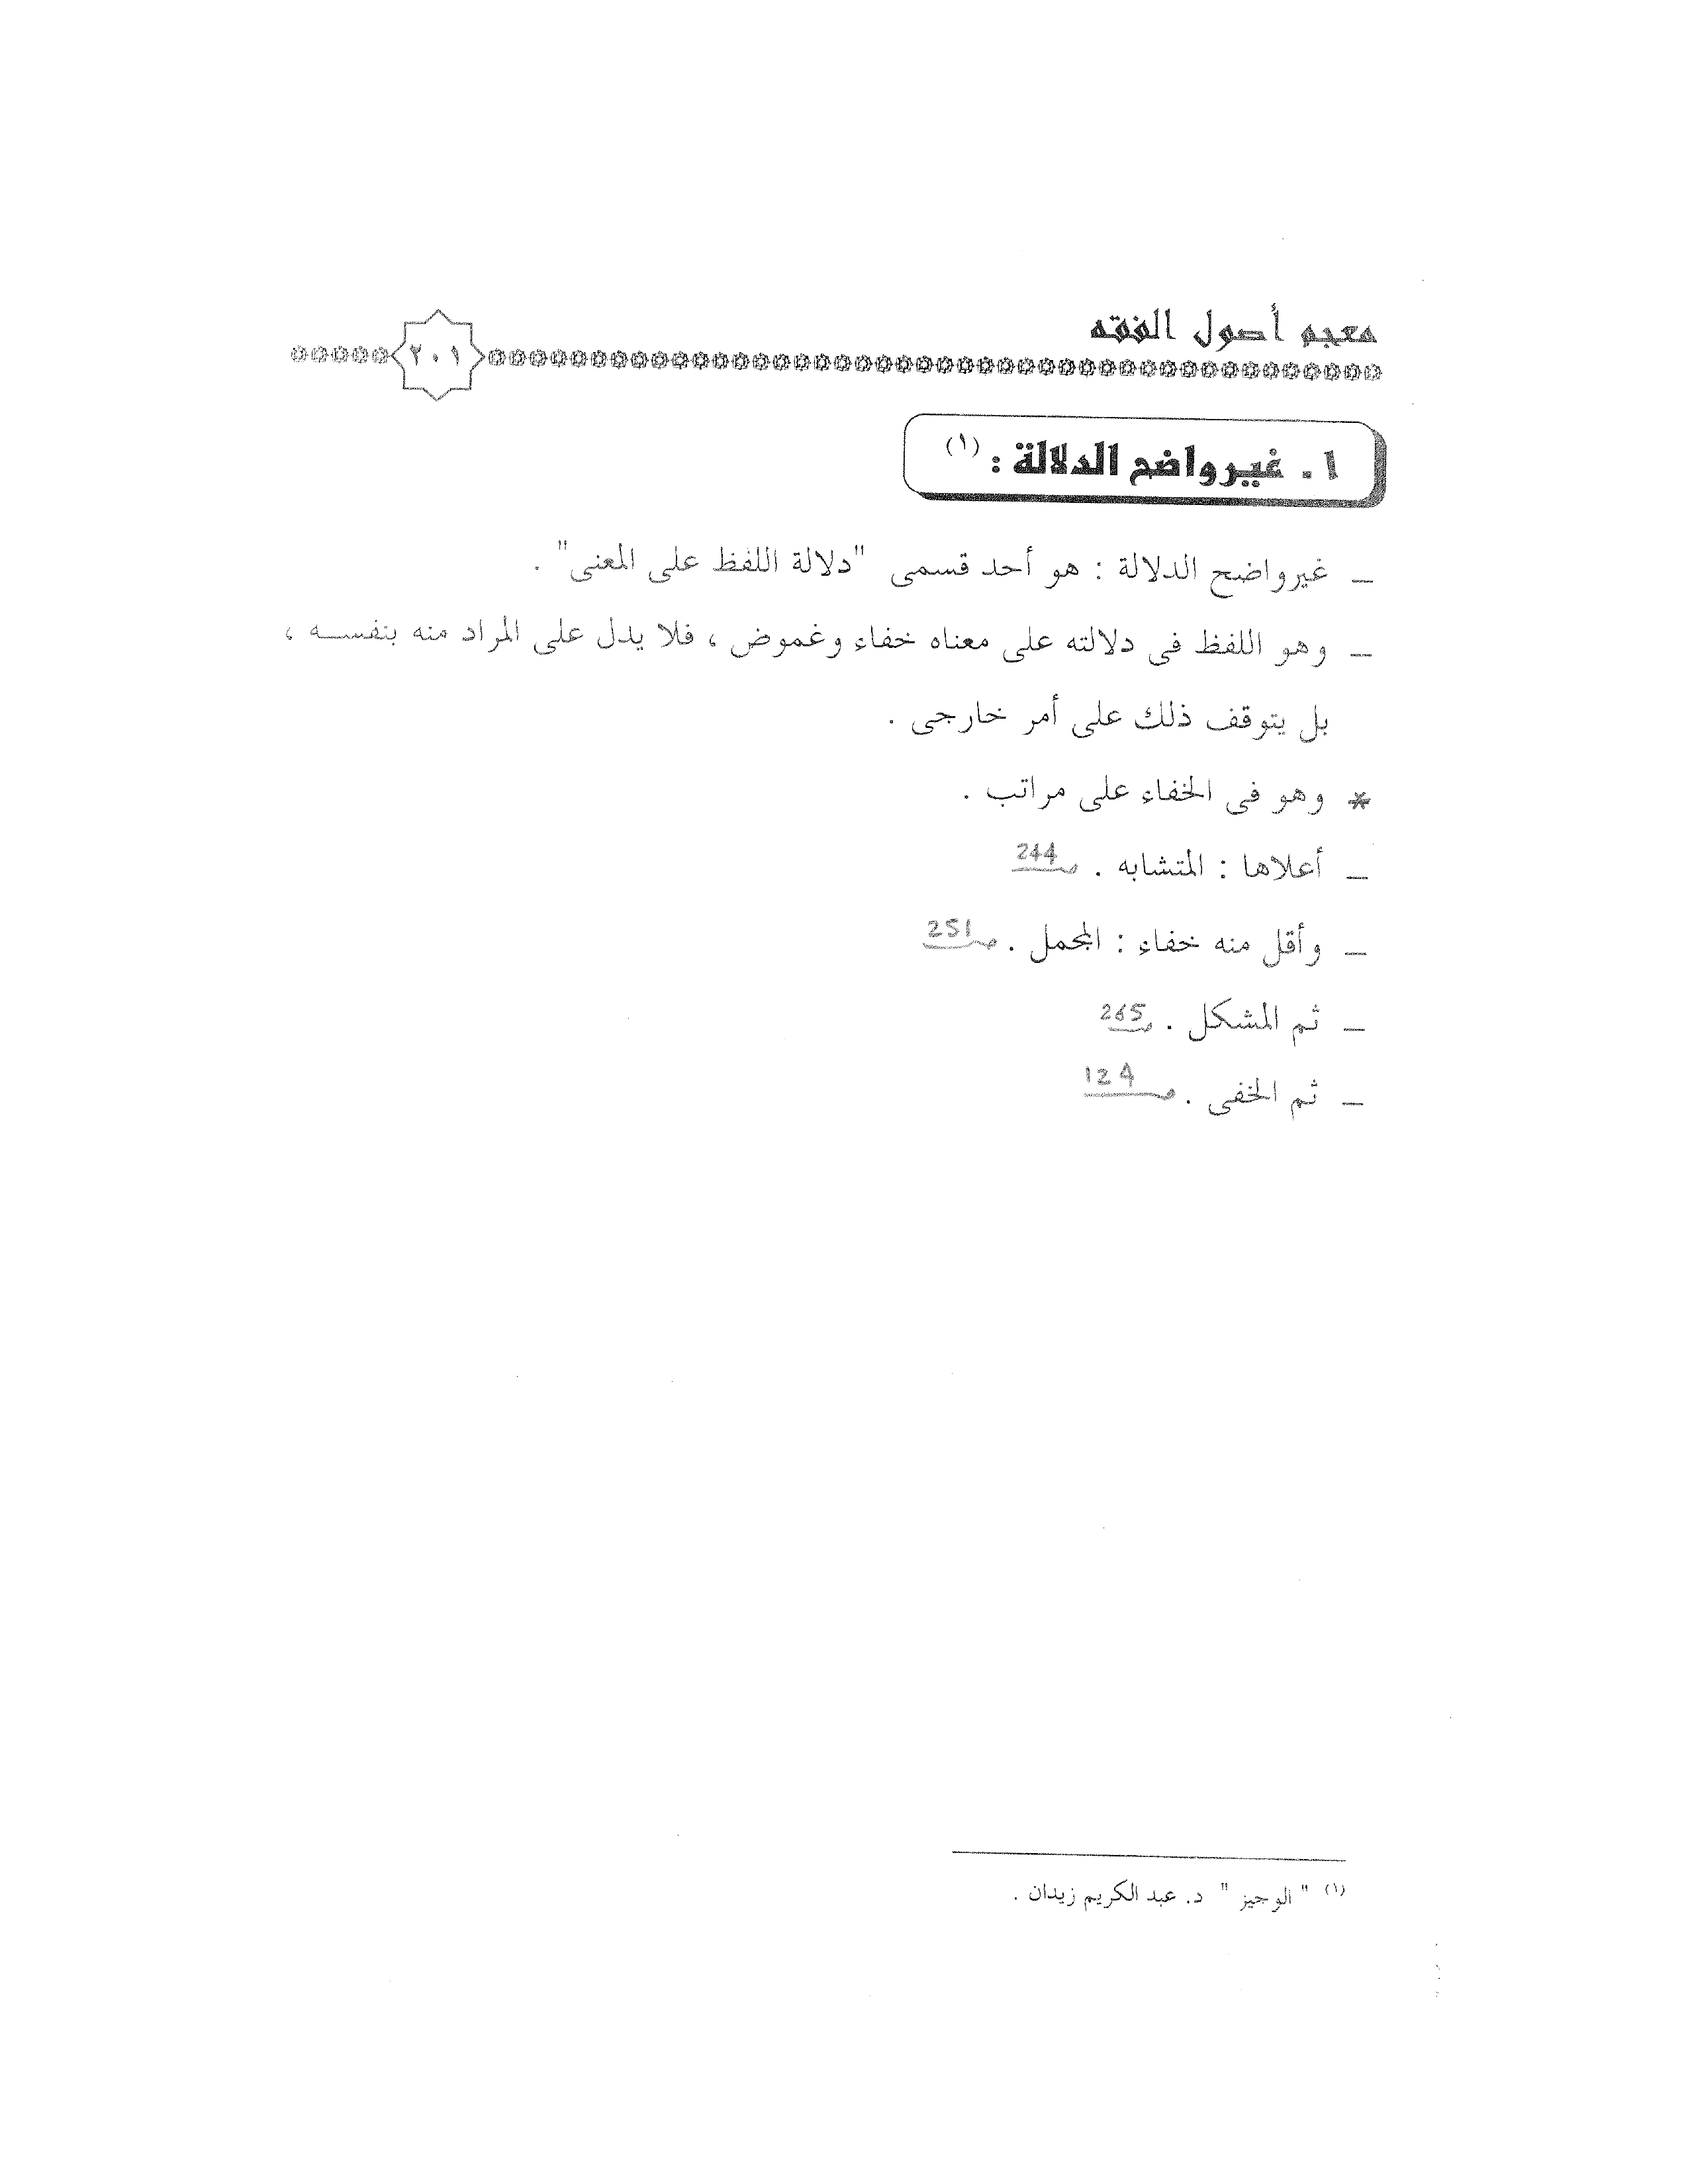 معجم أصول الفقه
٢٠١
١ . غيرواضح الدلالة : (١)
_ غيرواضح الدلالة : هو أحد قسمى "دلالة اللفظ على المعنى" .
_ وهو اللفظ فى دلالته على معناه خفاء وغموض ، فلا يدل على المراد منه بنفسـه ،
بل يتوقف ذلك على أمر خارجى .
* وهو فى الخفاء على مراتب .
_ أعلاها : المتشابه . صـ 244
_ وأقل منه خفاء : المجمل . صـ 251
_ ثم المشكل . صـ 265
_ ثم الخفى . صـ 124
(١) " الوجيز " د. عبد الكريم زيدان .